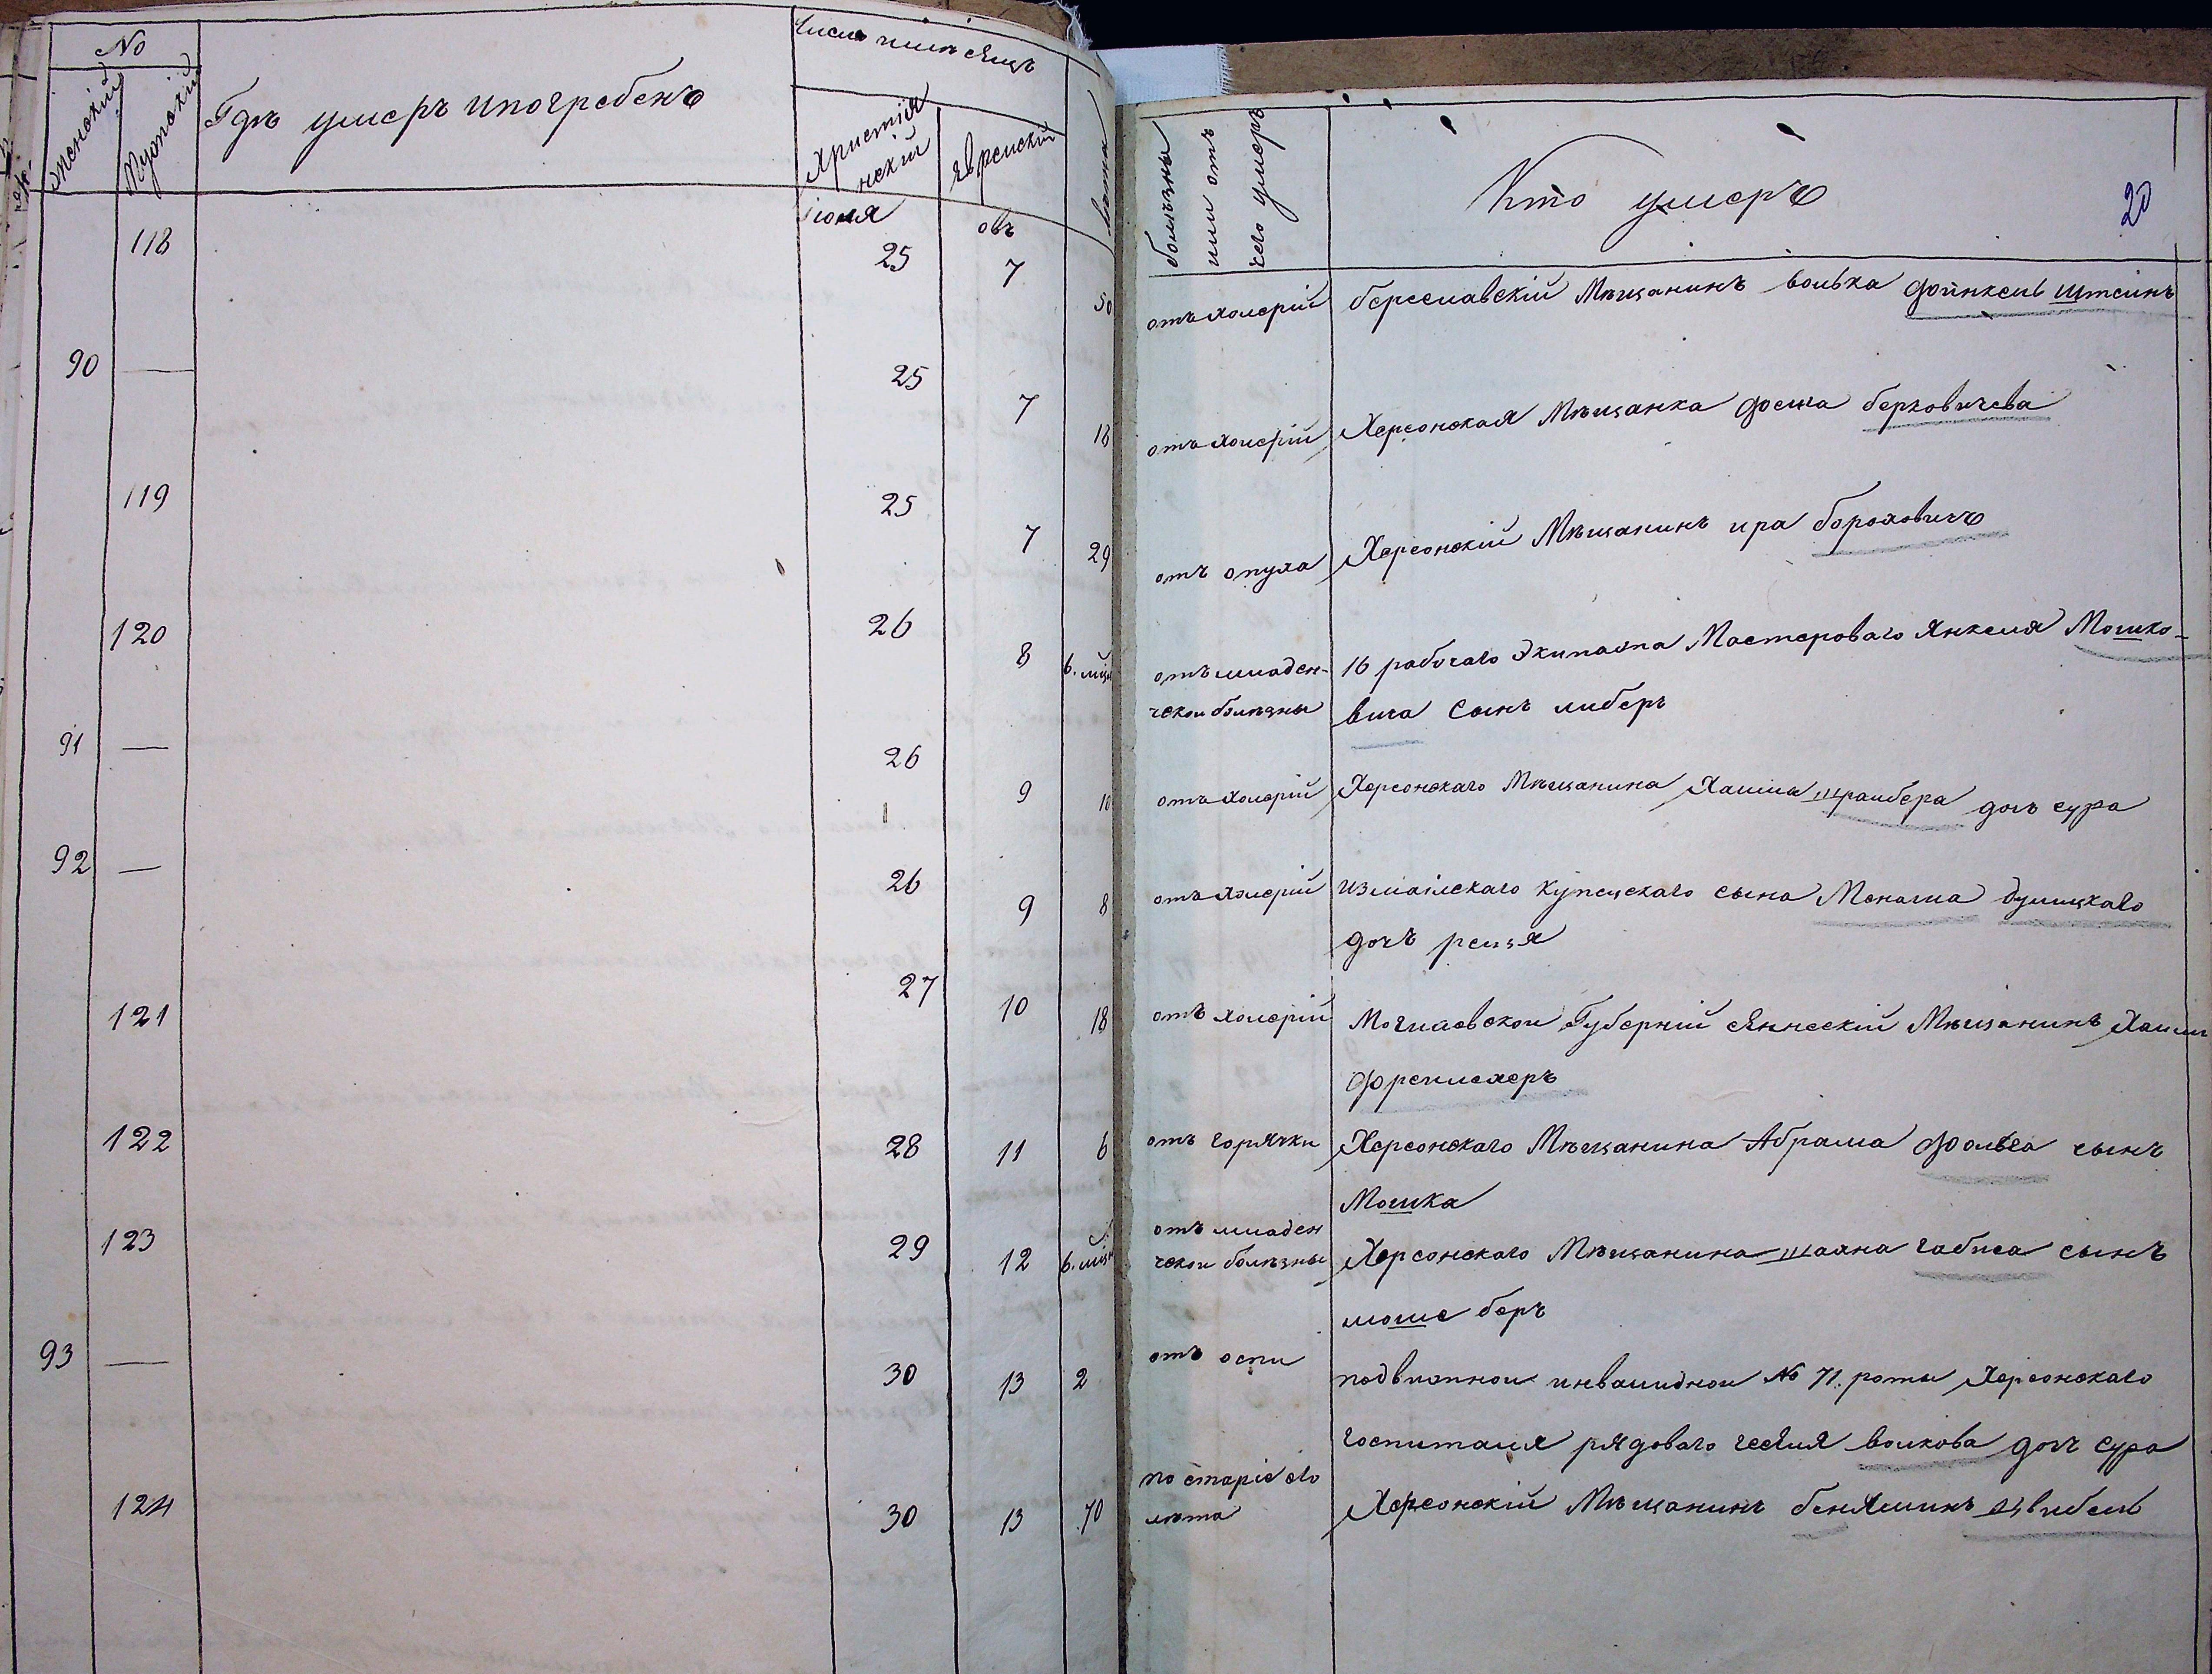 No
Женскій
Мужскій
Гдѣ умеръ и погребенъ
Число и мѣсяцъ
Христіанскій
Еврейскій
Лѣта
болѣзнь или отъ чего умеръ
Кто умеръ
20
июля
овъ
118 25 7 50 отъ холерій береславскій Мѣщанинъ волька финкель штеинъ
90 — 25 7 18 отъ холерій Херсонская Мѣщанка фейга берковичева
119 25 7 29 отъ опуха Херсонскій Мѣщанинъ ира бороховичъ
120 26 8 6. мѣс отъ младен- 16 рабочаго Экипажа Мастероваго Янкеля Мошко-
ческои болѣзны вича сынъ либеръ
91 — 26 9 10 отъ холерій Херсонскаго Мѣщанина Хаима шраибера дочь сура
92 — 26 9 8 отъ холерій измаілскаго купецскаго сына Монаша
дочъ реизя
121 27 10 18 отъ холерій Могилевской Губерній Мѣщанинъ Хаим
122 28 11 6 отъ горячки Херсонскаго Мѣщанина Абрама сынъ
Мошка
123 29 12 6. мѣс отъ младен
ческои болѣзны Херсонскаго Мѣщанина шахна габиса сынъ
моше беръ
93 — 30 13 2 отъ оспи подвижнои инвалиднои No 71. роты Херсонскаго
госпиталя рядоваго волкова дочъ сура
124 30 13 70 по старіе его
лѣта Херсонскій Мѣщанинъ беняминъ